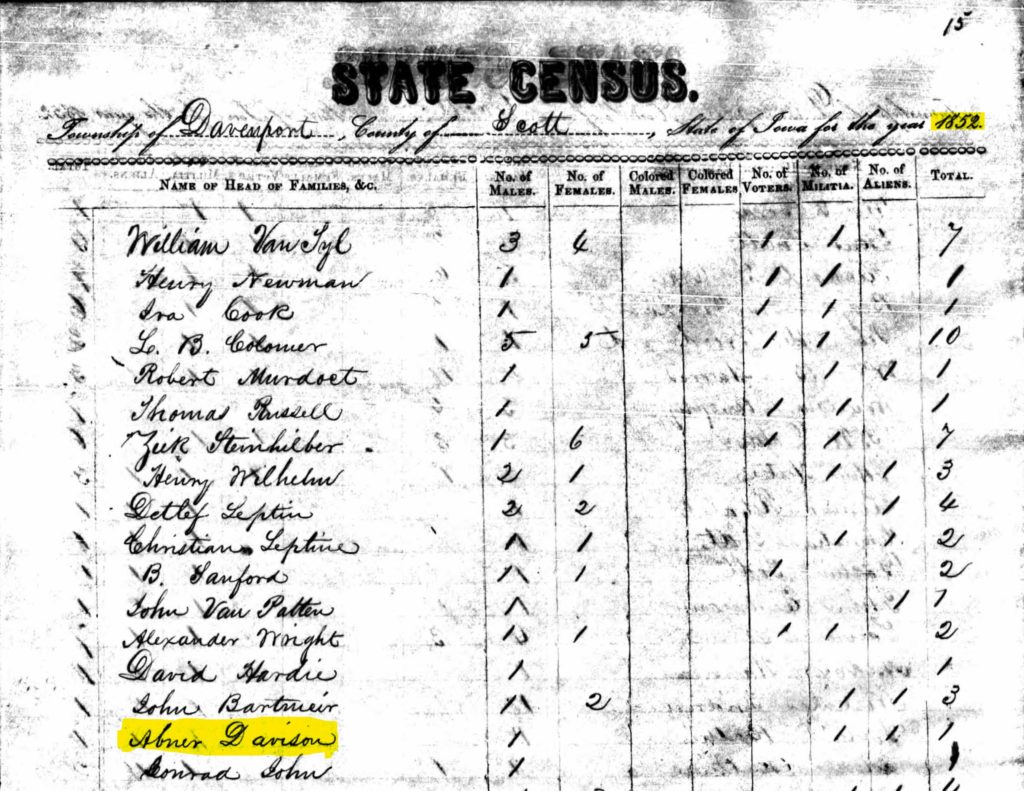 15
STATE CENSUS.
Township of Davenport, County of Scott, State of Iowa for the year 1852.
NAME OF HEAD OF FAMILIES, &C. No. of MALES. No. of FEMALES. Colored MALES. Colored FEMALES No. of VOTERS. No. of MILITIA. No. of ALIENS. TOTAL.
William Van Tyl 3 4 1 1 7
Henry Newman 1 1 1 1
Ira Cook 1 1 1 1
L. B. Colomer 5 5 1 1 10
Robert Murdoct 1 1 1 1
Thomas Russell 1 1 1 1
Zeek Steinhilber 1 6 1 1 7
Henry Wilhelm 2 1 1 1 3
Detlef Leptin 2 2 1 4
Christian Leptine 1 1 1 1 2
B. Sanford 1 1 1 2
John Van Patten 1 1 1
Alexander Wright 1 1 1 1 2
David Hardie 1 1
John Bartmeir 1 2 1 1 3
Abner Davison 1 1 1 1
Conrad John 1 1